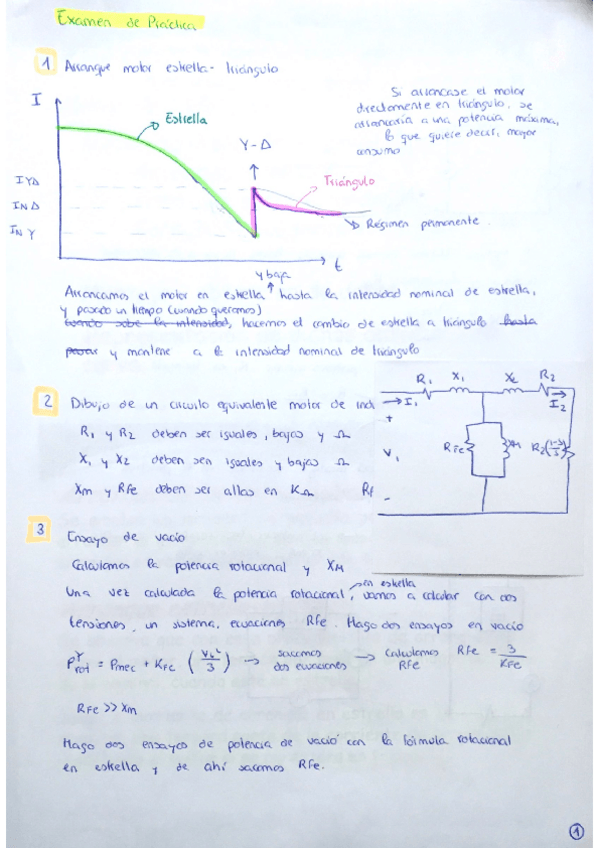 Examen de Práctica
1 Arranque motor estrella - triángulo
Si arrancase el motor
directamente en triángulo, se
arrancaría a una potencia máxima,
lo que quiere decir, mayor
consumo
I
Estrella
Y-Δ
Triángulo
IYΔ
INΔ
INY
Régimen permanente.
t
y baja
Arrancamos el motor en estrella hasta la intensidad nominal de estrella,
y pasado un tiempo (cuando queramos)
cuando sube la intensidad, hacemos el cambio de estrella a triángulo hasta
pasar y mantene a la intensidad nominal de triángulo
2 Dibujo de un circuito equivalente motor de ind
R1 y R2 deben ser iguales, bajas y Ω
X1 y X2 deben sen iguales y bajas Ω
Xm y RFe deben ser altas en KΩ Rf
R1 X1 X2 R2
I1 I2
+
V1
RFe Xm R2(1-s/s)
-
3 Ensayo de vacio
Calculamos la potencia rotacional y XM
en estrella
Una vez calculada la potencia rotacional, vamos a calcular con dos
tensiones, un sistema, ecuaciones RFe. Hago dos ensayos en vacío
ProtY = Pmec + KFe (VL²/3) → sacamos dos ecuaciones → Calculamos RFe RFe = 3/KFe
RFe >> Xm
Hago dos ensayos de potencia de vacío con la fórmula rotacional
en estrella y de ahí sacamos RFe.
1